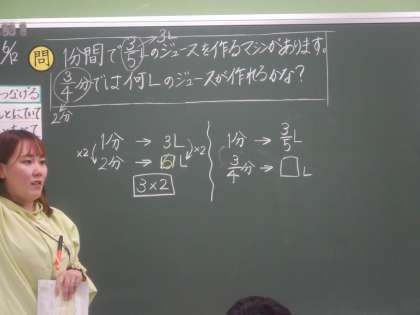 5/12 問 1分間で3/5Lのジュースを作るマシンがあります。
→3L
3/4分では何Lのジュースが作れるかな?
2分
つなげる
1分 → 3L
×2 2分 → 6L ×2
3×2
1分 → 3/5L
3/4分 → □L